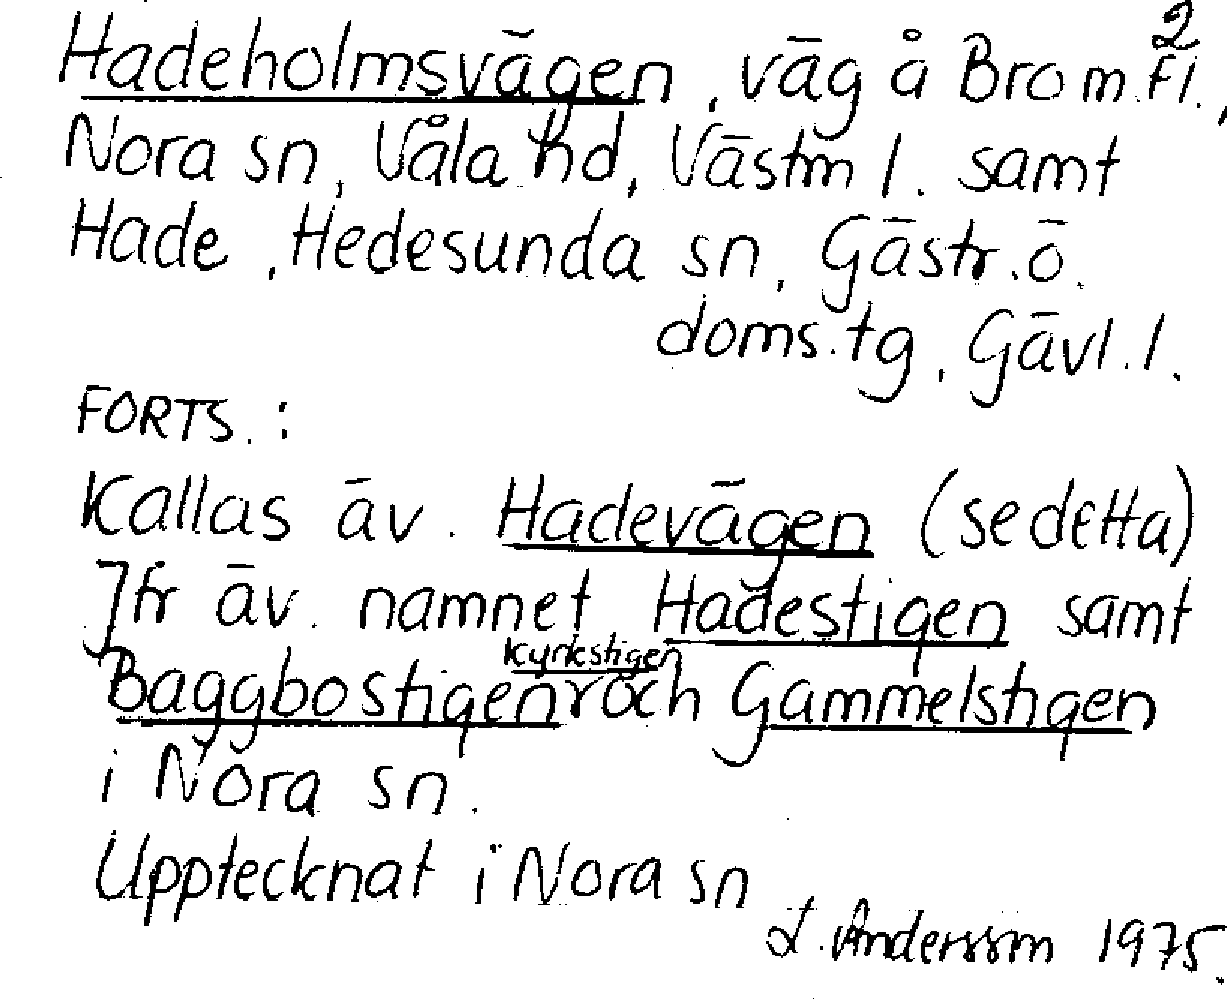 2
Hadeholmsvägen, väg å Brom. Fl.,
Nora sn, Våla hd, Västm l. samt
Hade, Hedesunda sn, Gästr. ö.
doms. tg, Gävl. l.
FORTS. :
Kallas äv. Hadevägen (se detta)
Jfr äv. namnet Hadestigen samt
kyrkstigen
Baggbostigen och Gammelstigen
i Nora sn.
Upptecknat i Nora sn
L. Andersson 1975.